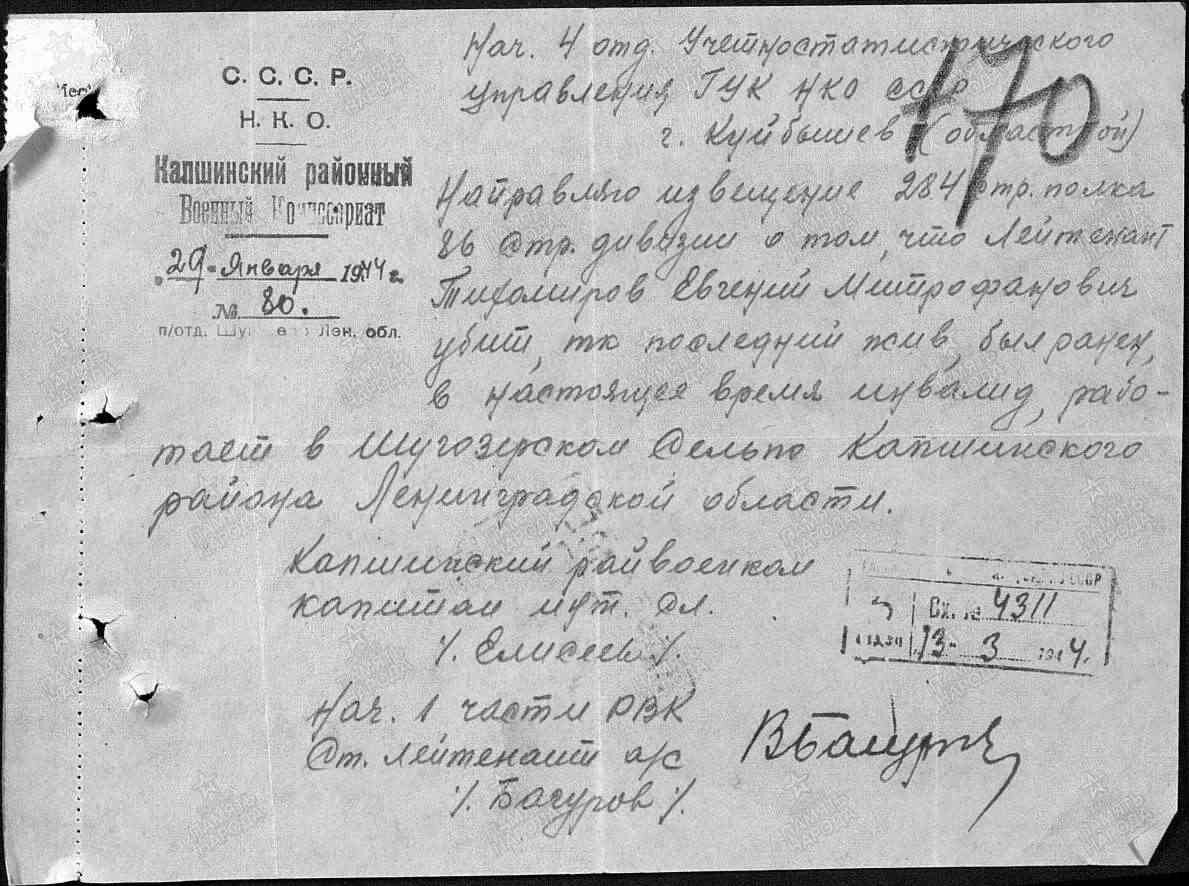 С. С. С. Р.
Н. К. О.
Капшинский районный
Военный Комиссариат
"29" Января 1944 г.
№ 80.
п/отд. Лен. обл.
Нач. 4 отд. Учетностатистического
управления ГУК НКО СССР
г. Куйбышев (областной)
170
Направляю извещение 284 стр. полка
86 Стр. дивизии о том, что Лейтенант
Тихомиров Евгений Митрофанович
убит, тк последний жив, был ранен,
в настоящее время инвалид, рабо-
тает в Шугозерском Сельпо Капшинского
района Ленинградской области.
Капшинский райвоенком
капитан инт. сл.
/. Елисеев /.
СССР
Вх. № 4311
13 - 3 1944.
Нач. 1 части РВК
Ст. Лейтенант а/с
/. Багуров /.